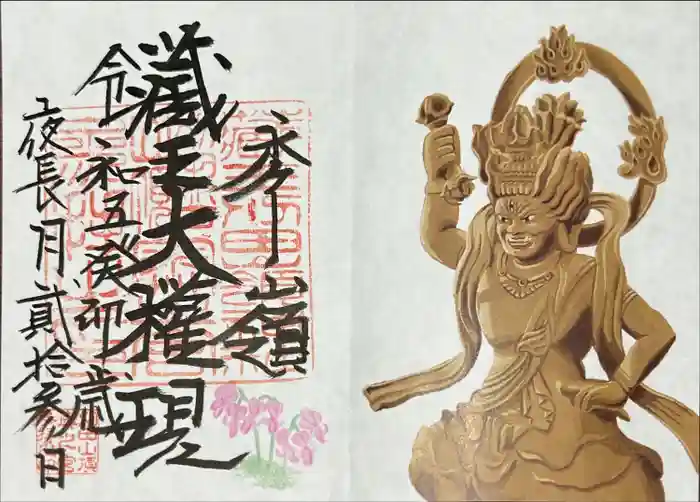 秀嶺
藏王大權現
令和五癸卯歳
夜長月貳拾参日